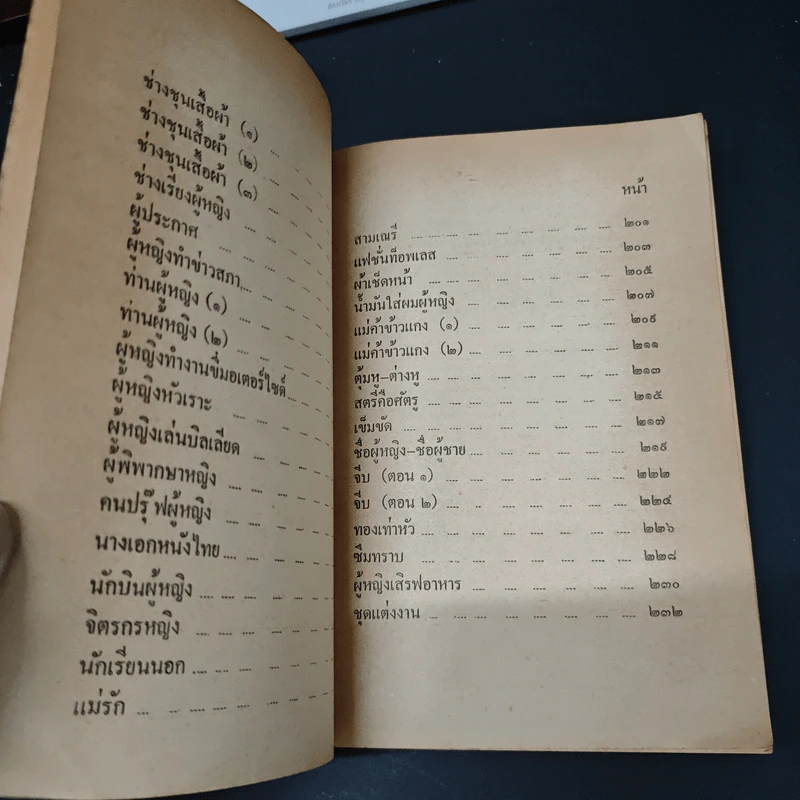 ช่างชุนเสื้อผ้า (๑) .... ....
ช่างชุนเสื้อผ้า (๒) .... ....
ช่างชุนเสื้อผ้า (๓) .... ....
ช่างเรียงผู้หญิง .... .... ....
ผู้ประกาศ .... .... .... ....
ผู้หญิงทำข่าวสภา .... .... ....
ท่านผู้หญิง (๑) .... .... ....
ท่านผู้หญิง (๒) .... .... ....
ผู้หญิงทำงานขี่มอเตอร์ไซด์ .... ....
ผู้หญิงหัวเราะ .... .... .... ....
ผู้หญิงเล่นบิลเลียด .... .... ....
ผู้พิพากษาหญิง .... .... .... ....
คนปรุ๊ฟผู้หญิง .... .... .... ....
นางเอกหนังไทย .... .... .... ....
นักบินผู้หญิง .... .... .... ....
จิตรกรหญิง .... .... .... ....
นักเรียนนอก .... .... .... ....
แม่รัก .... .... .... .... ....
หน้า
สามเณรี .... .... .... .... .... ๒๐๑
แฟชั่นท็อพเลส .... .... .... .... ๒๐๓
ผ้าเช็ดหน้า .... .... .... .... ๒๐๕
น้ำมันใส่ผมผู้หญิง .... .... .... ๒๐๗
แม่ค้าข้าวแกง (๑) .... .... .... ๒๐๙
แม่ค้าข้าวแกง (๒) .... .... .... ๒๑๑
ตุ้มหู-ต่างหู .... .... .... .... ๒๑๓
สตรีคือศัตรู .... .... .... .... ๒๑๕
เข็มขัด .... .... .... .... .... ๒๑๗
ชื่อผู้หญิง-ชื่อผู้ชาย .... .... .... ๒๑๙
จีบ (ตอน ๑) .... .... .... .... ๒๒๒
จีบ (ตอน ๒) .... .... .... .... ๒๒๔
ทองเท่าหัว .... .... .... .... ๒๒๖
ซึมทราบ .... .... .... .... ๒๒๘
ผู้หญิงเสิรฟอาหาร .... .... .... ๒๓๐
ชุดแต่งงาน .... .... .... .... ๒๓๒